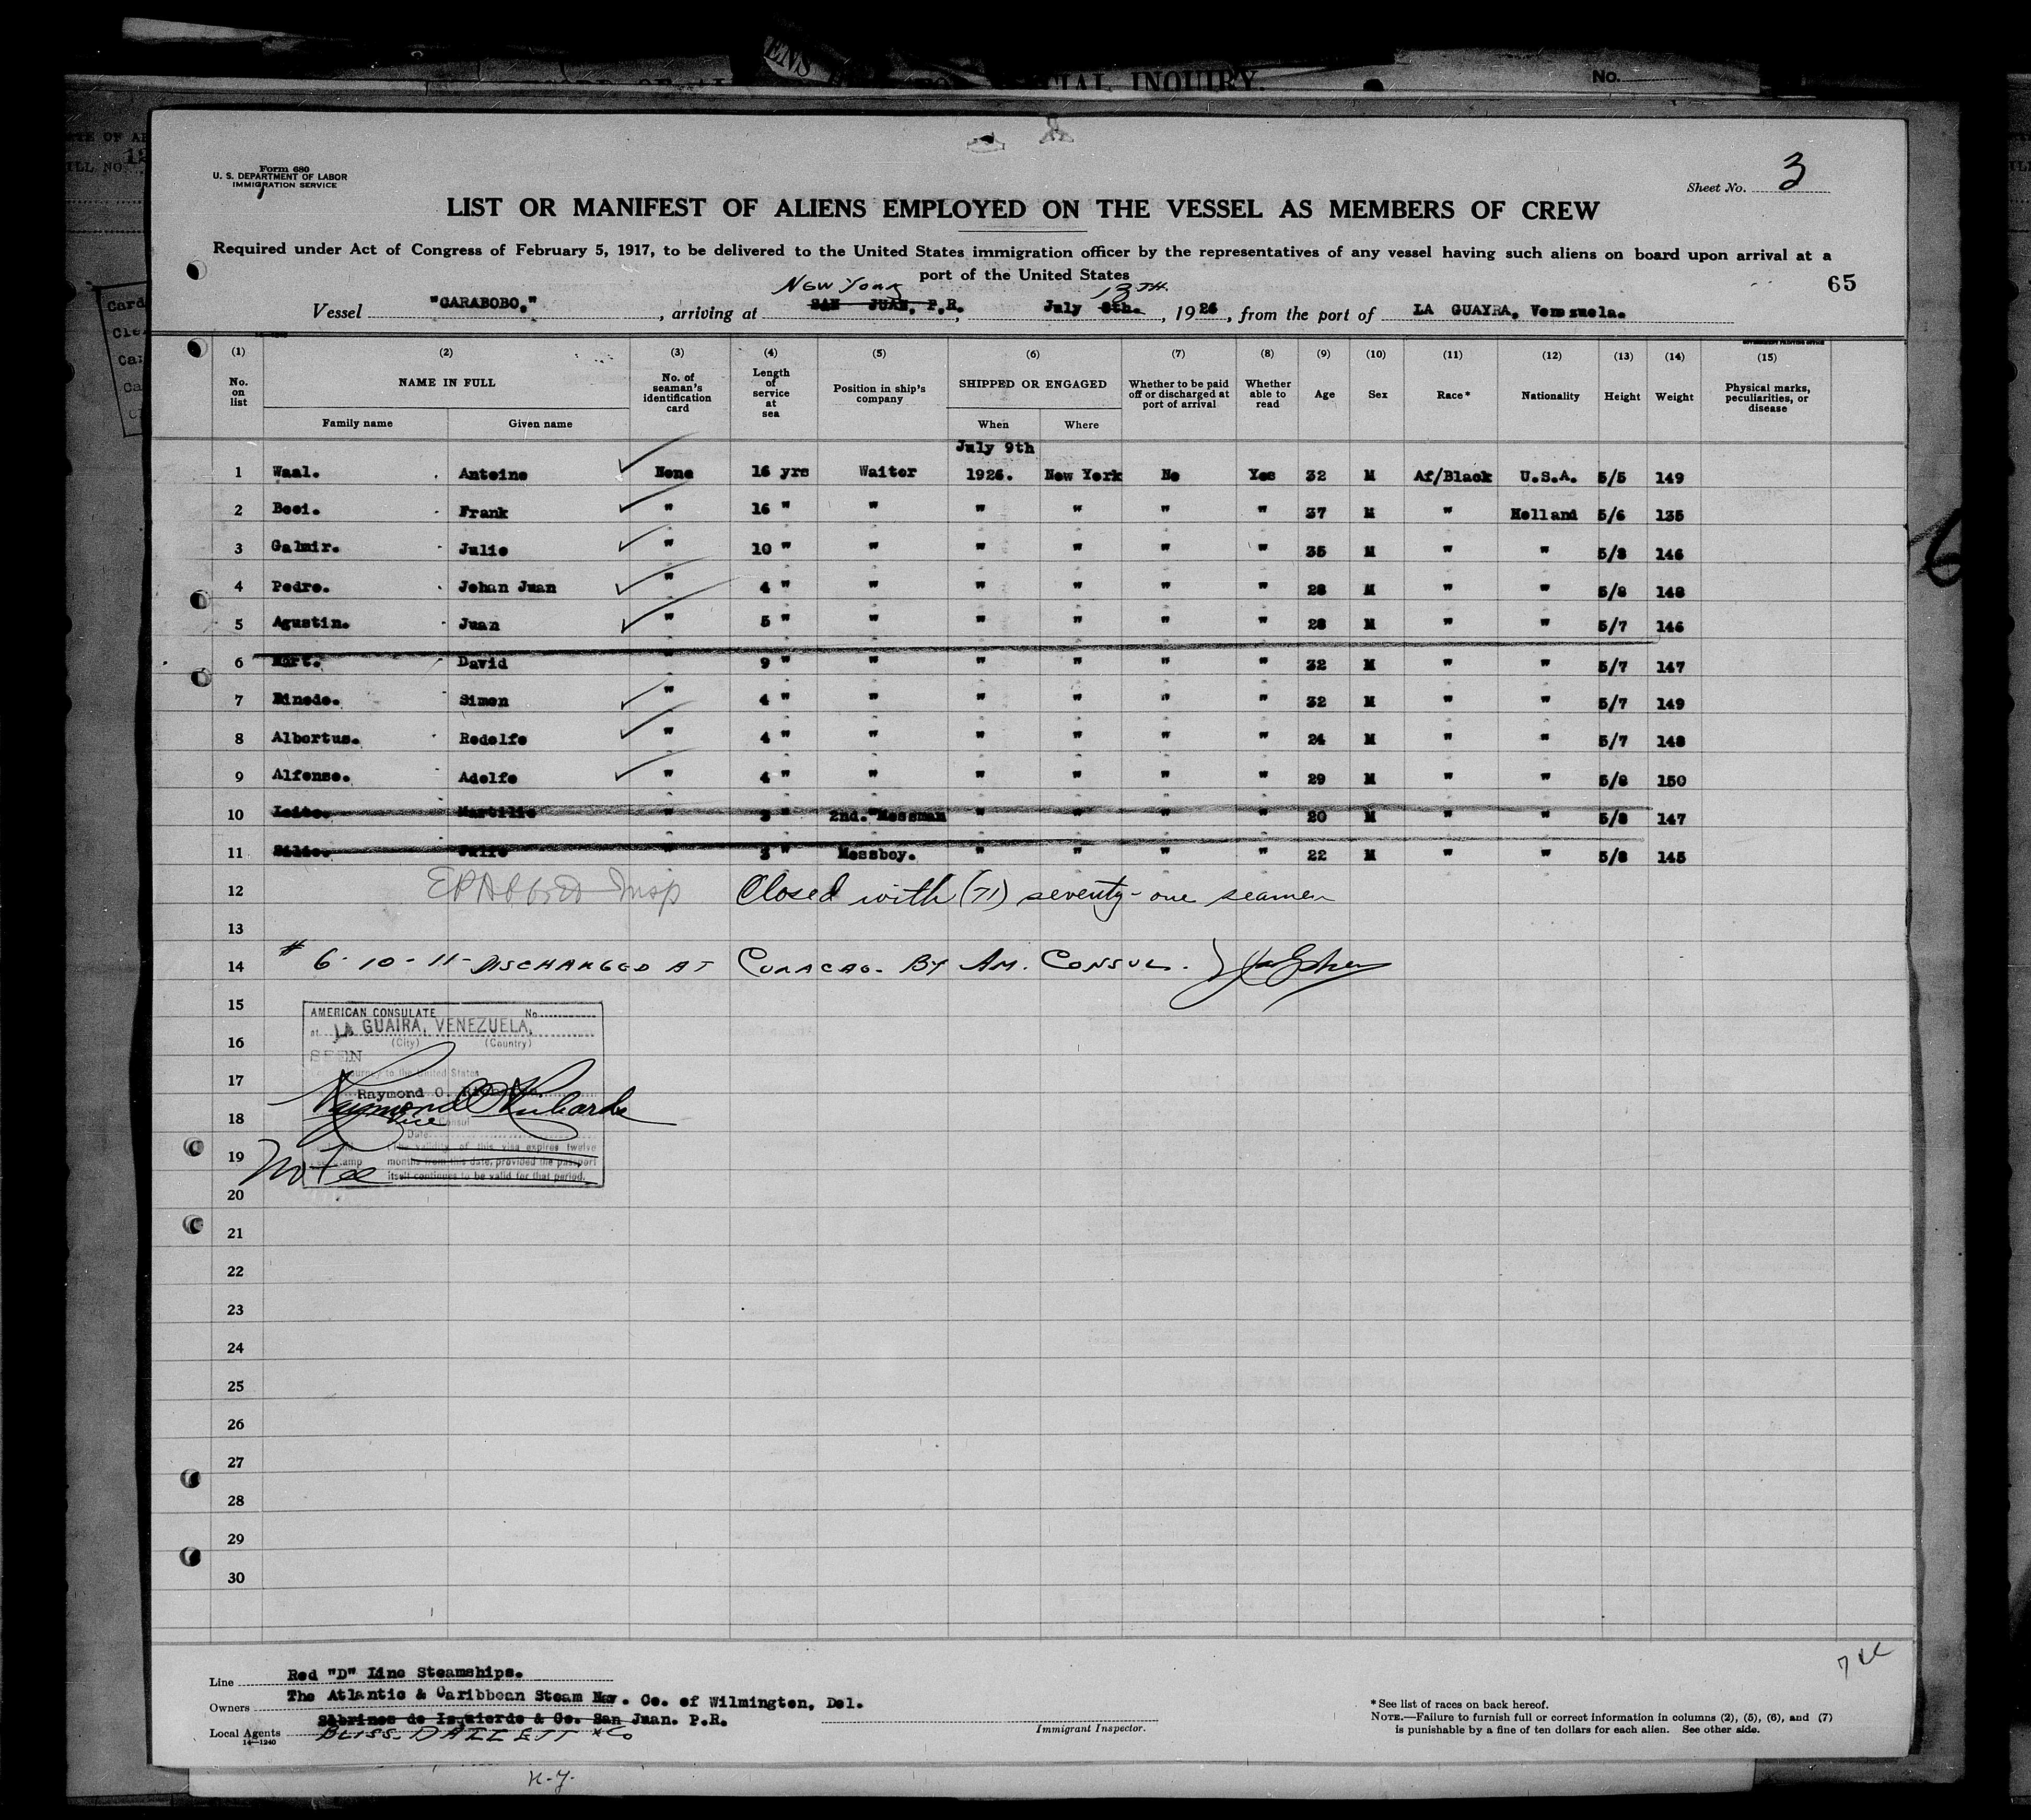 CIAL INQUIRY.
No.
Form 680
U. S. DEPARTMENT OF LABOR
IMMIGRATION SERVICE
Sheet No. 3
LIST OR MANIFEST OF ALIENS EMPLOYED ON THE VESSEL AS MEMBERS OF CREW
Required under Act of Congress of February 5, 1917, to be delivered to the United States immigration officer by the representatives of any vessel having such aliens on board upon arrival at a
port of the United States
65
NEW YORK 13TH
Vessel "CARABOBO," , arriving at SAN JUAN, P.R. , July 8th. , 1926 , from the port of LA GUAYRA, Venezuela.
(1) (2) (3) (4) (5) (6) (7) (8) (9) (10) (11) (12) (13) (14) (15)
No. on list NAME IN FULL No. of seaman's identification card Length of service at sea Position in ship's company SHIPPED OR ENGAGED Whether to be paid off or discharged at port of arrival Whether able to read Age Sex Race* Nationality Height Weight Physical marks, peculiarities, or disease
Family name Given name When Where
July 9th
1 Waal. Antoine None 16 yrs Waiter 1926. New York No Yes 32 M Af/Black U.S.A. 5/5 149
2 Beei. Frank " 16 " " " " " " 37 M " Holland 5/6 135
3 Galmir. Julio " 10 " " " " " " 35 M " " 5/8 146
4 Pedro. Johan Juan " 4 " " " " " " 28 M " " 5/8 148
5 Agustin. Juan " 5 " " " " " " 28 M " " 5/7 146
6 David " 9 " " " " " " 32 M " " 5/7 147
7 Simon " 4 " " " " " " 32 M " " 5/7 149
8 Albertus. Rodolfo " 4 " " " " " " 24 M " " 5/7 148
9 Alfonso. Adolfo " 4 " " " " " " 29 M " " 5/8 150
10 " 3 " 2nd. Messman " " " " 20 M " " 5/8 147
11 " 3 " Messboy. " " " " 22 M " " 5/8 145
12 Insp Closed with (71) seventy-one seamen
13
14 # 6-10-11- DISCHARGED AT CURACAO. BY AM. CONSUL.
15
16
17
18
19
20
21
22
23
24
25
26
27
28
29
30
AMERICAN CONSULATE No.
at LA GUAIRA, VENEZUELA.
(City) (Country)
SEEN
journey to the United States
Raymond O. Richards
Vice Consul
Date
The validity of this visa expires twelve
months from this date, provided the passport
itself continues to be valid for that period.
No Fee
Line Red "D" Line Steamships.
Owners The Atlantic & Caribbean Steam Nav. Co. of Wilmington, Del.
Sobrinos de Izquierdo & Co. San Juan. P.R.
Local Agents BLISS DALLETT & Co
14—1240
Immigrant Inspector.
* See list of races on back hereof.
NOTE.—Failure to furnish full or correct information in columns (2), (5), (6), and (7)
is punishable by a fine of ten dollars for each alien. See other side.
N.Y.